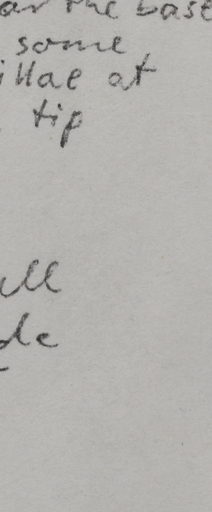 ar the base
some
illae at
tip
ell
de